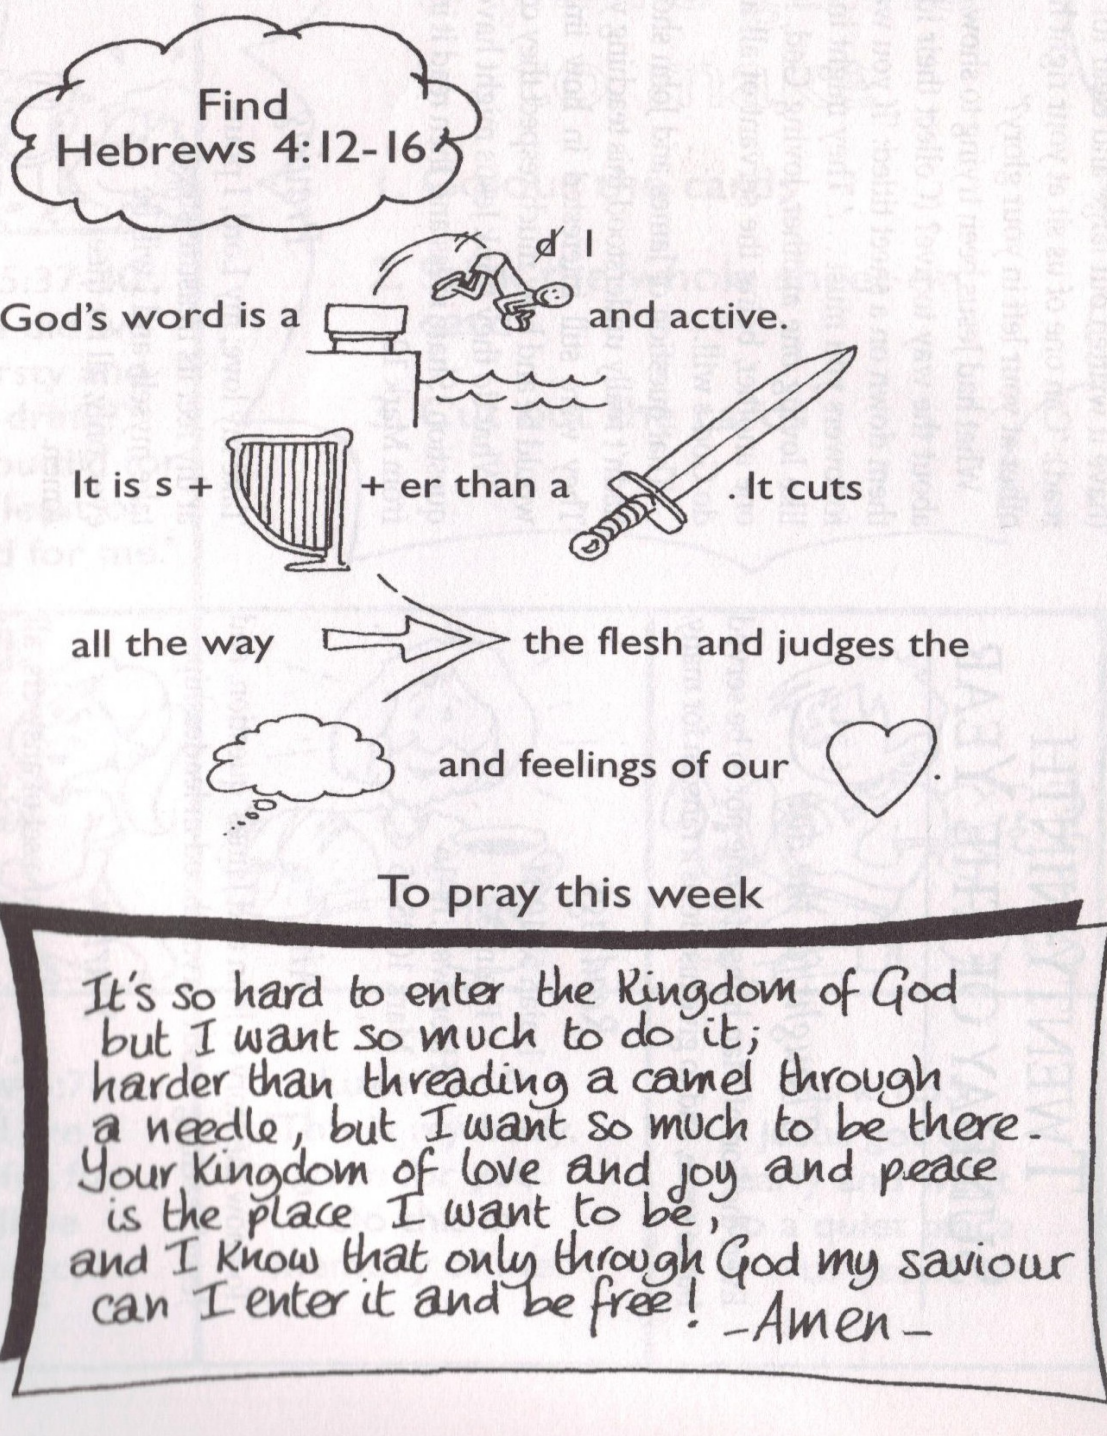 Find
Hebrews 4:12-16
d l
God's word is a and active.
It is s + + er than a . It cuts
all the way the flesh and judges the
and feelings of our .
To pray this week
It's so hard to enter the Kingdom of God
but I want so much to do it;
harder than threading a camel through
a needle, but I want so much to be there.
Your Kingdom of love and joy and peace
is the place I want to be,
and I know that only through God my saviour
can I enter it and be free!
-Amen-